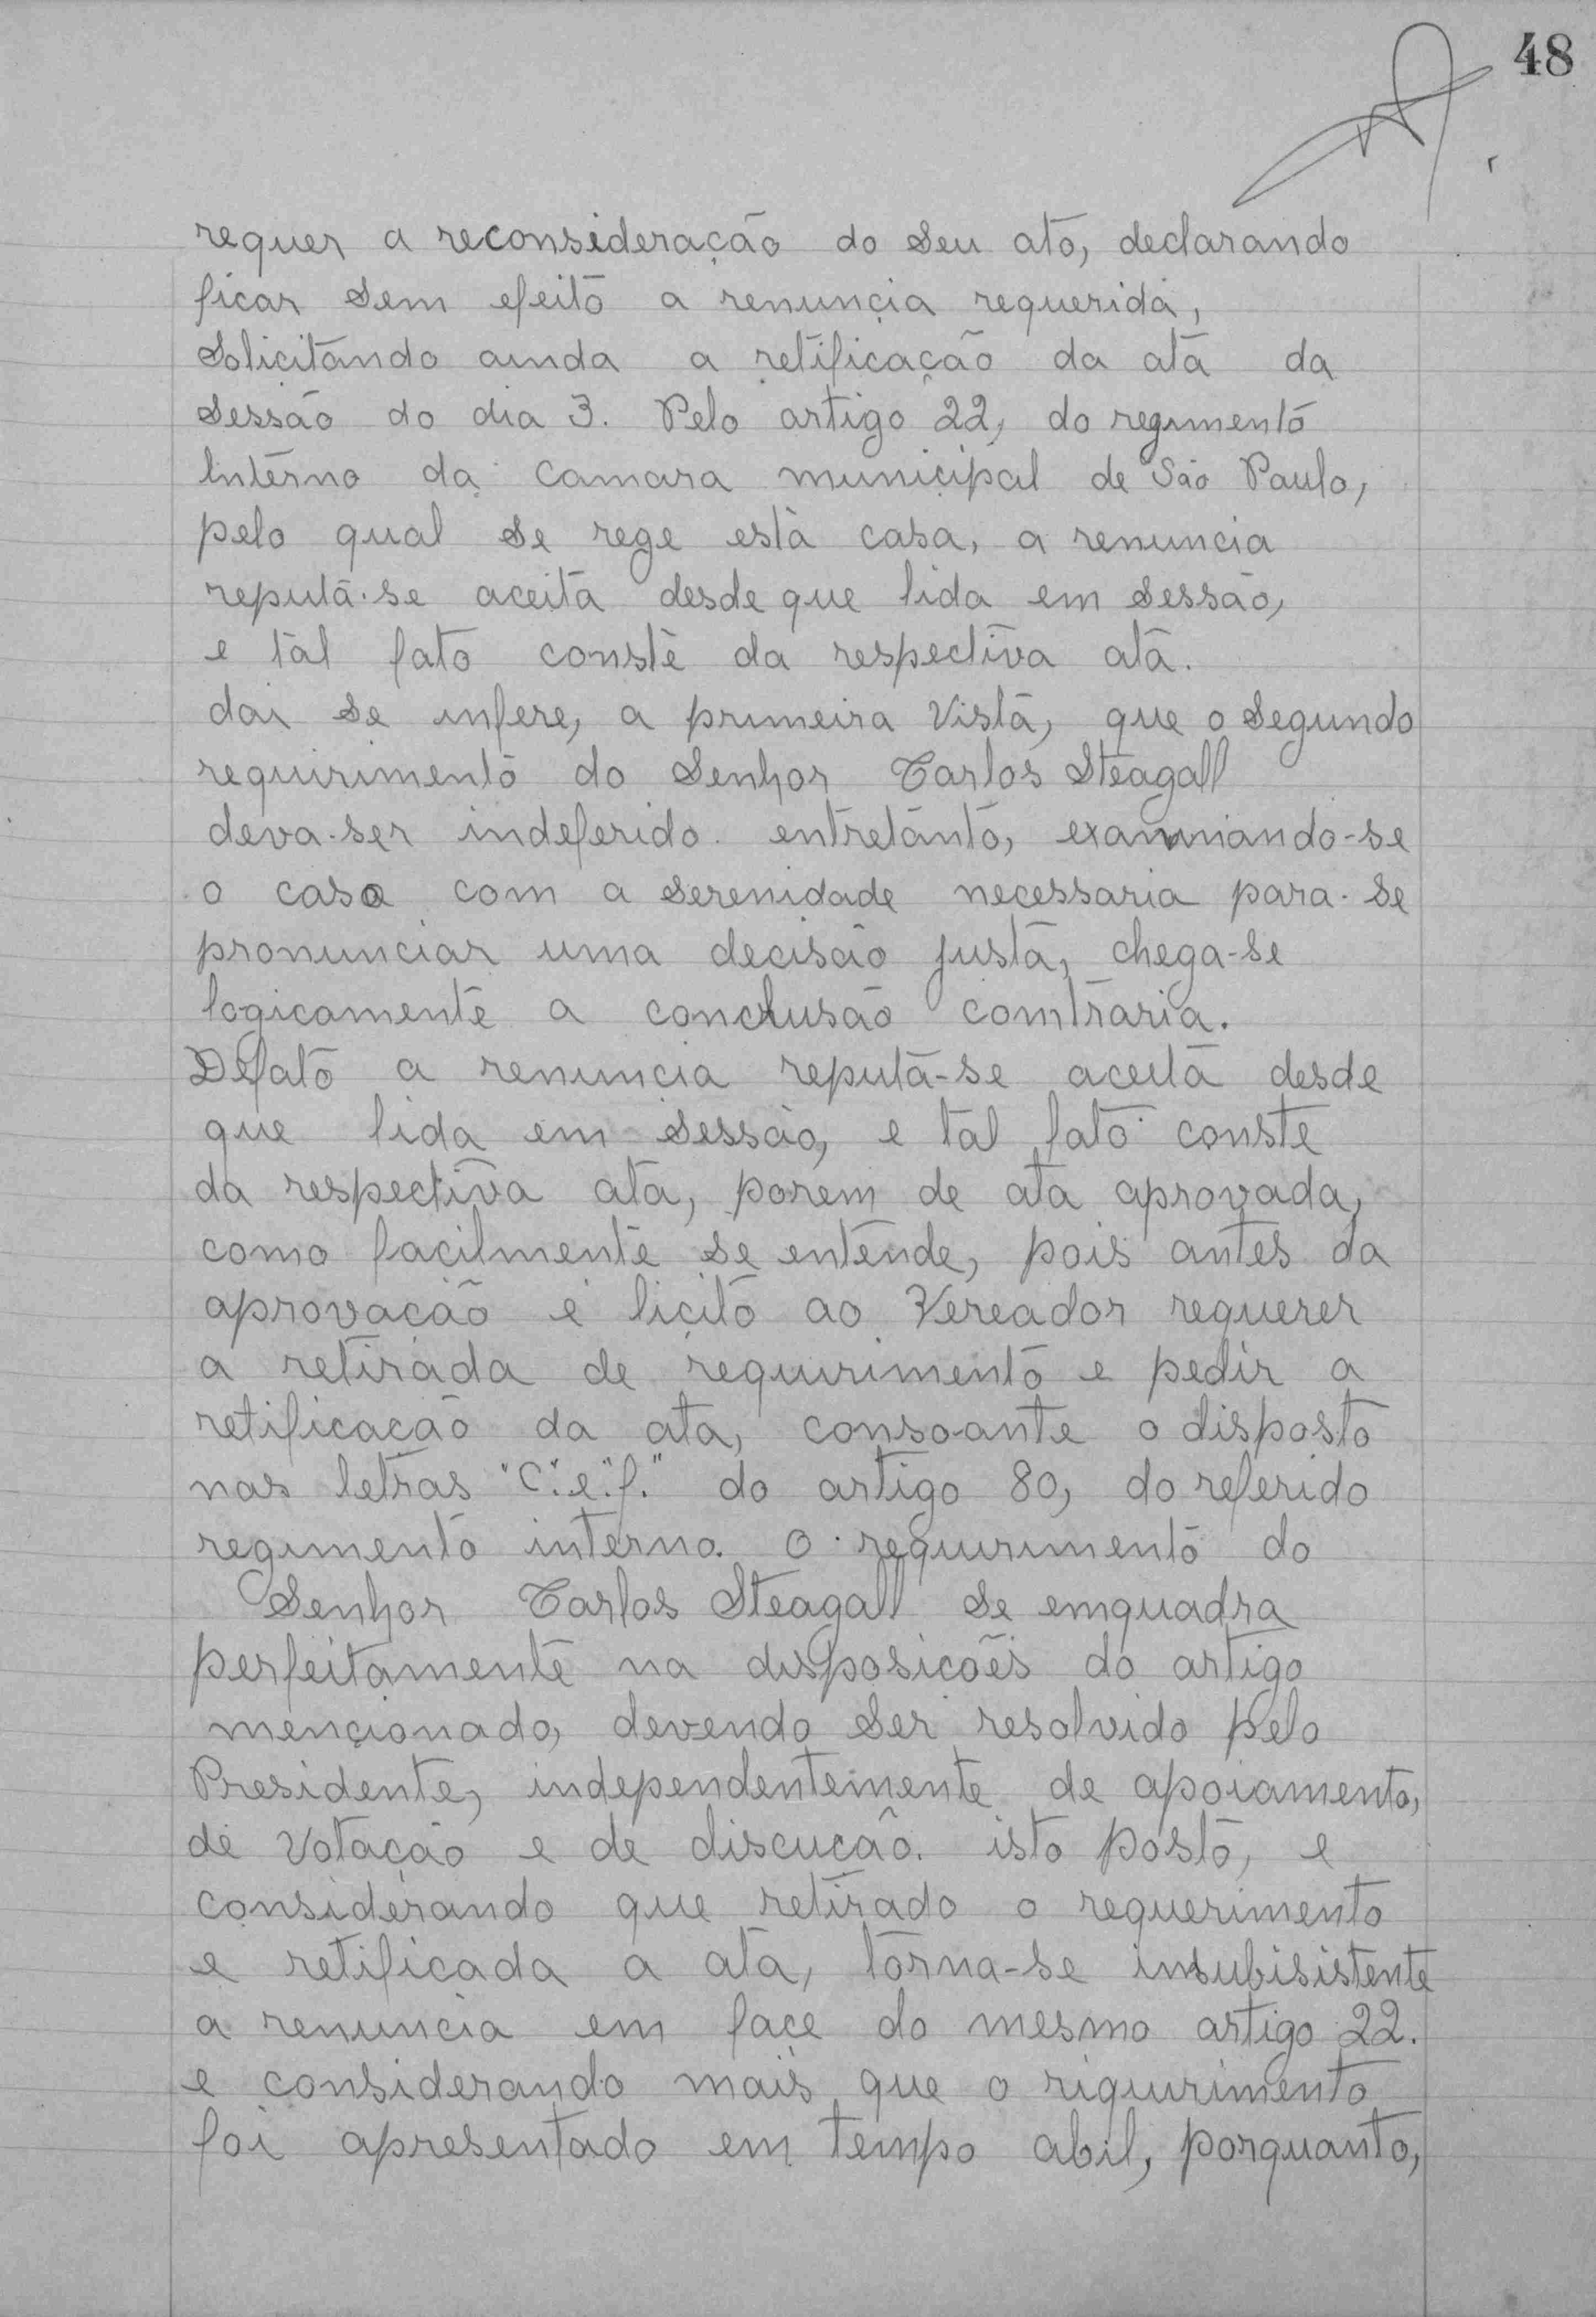 48
requer a reconsideração do seu ato, declarando
ficar sem efeito a renuncia requerida,
solicitando ainda a retificação da ata da
sessão do dia 3. Pelo artigo 22, do regimento
Interno da camara municipal de São Paulo,
pelo qual se rege esta casa, a renuncia
reputa-se aceita desde que lida em sessão,
e tal fato conste da respectiva ata.
dai se infere, a primeira vista, que o segundo
requirimento do Senhor Carlos Steagall
deva-ser indeferido. entretanto, examiniando-se
o caso com a serenidade necessaria para-se
pronunciar uma decisão justa, chega-se
logicamente a conclusão comtraria.
Defato a renuncia reputa-se aceita desde
que lida em sessão, e tal fato conste
da respectiva ata, porem de ata aprovada,
como facilmente se entende, pois antes da
aprovação é licito ao Vereador requerer
a retirada de requirimento e pedir a
retificação da ata, consoante o disposto
nas letras "C". e "f." do artigo 80, do referido
regimento interno. O requirimento do
Senhor Carlos Steagall se emquadra
perfeitamente na disposições do artigo
mencionado, devendo ser resolvido pelo
Presidente, independentemente de apoiamento,
de votação e de discução. isto posto, e
considerando que retirado o requerimento
e retificada a ata, torna-se insubisistente
a renuncia em face do mesmo artigo 22.
e considerando mais que o riquirimento
foi apresentado em tempo abil, porquanto,